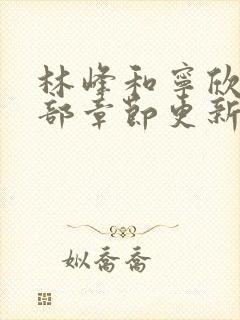 林峰和寧欣
部章節更新
姒喬喬